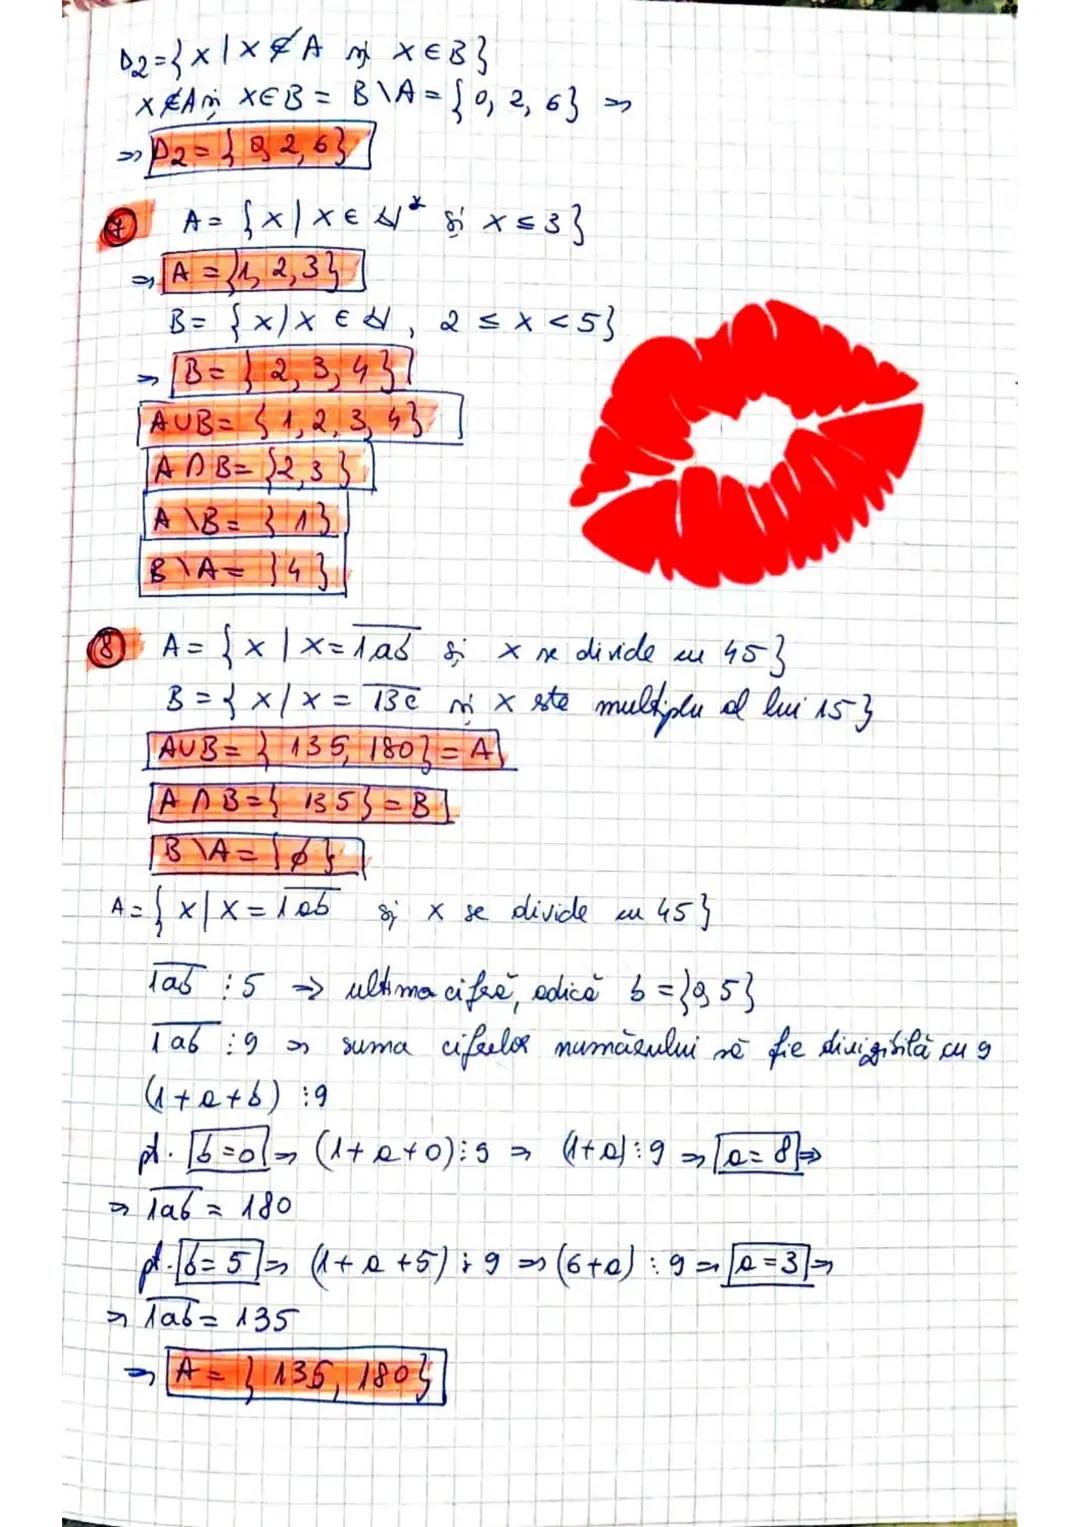 D2={x | x ∉ A și x ∈ B}
x ∉ A și x ∈ B = B \ A = {0, 2, 6} ⇒
⇒ D2 = {0, 2, 6}
7 A = {x | x ∈ N* și x ≤ 3}
⇒ A = {1, 2, 3}
B = {x | x ∈ N, 2 ≤ x < 5}
⇒ B = {2, 3, 4}
A ∪ B = {1, 2, 3, 4}
A ∩ B = {2, 3}
A \ B = {1}
B \ A = {4}
8 A = {x | x = 1ab și x se divide cu 45}
B = {x | x = 13c și x este multiplu al lui 15}
A ∪ B = {135, 180} = A
A ∩ B = {135} = B
B \ A = {∅}
A = {x | x = 1ab și x se divide cu 45}
1ab ⋮ 5 ⇒ ultima cifră, adică b = {0, 5}
1ab ⋮ 9 ⇒ suma cifrelor numărului să fie divizibilă cu 9
(1 + a + b) ⋮ 9
pt. b = 0 ⇒ (1 + a + 0) ⋮ 9 ⇒ (1 + a) ⋮ 9 ⇒ a = 8 ⇒
⇒ 1ab = 180
pt. b = 5 ⇒ (1 + a + 5) ⋮ 9 ⇒ (6 + a) ⋮ 9 ⇒ a = 3 ⇒
⇒ 1ab = 135
⇒ A = {135, 180}